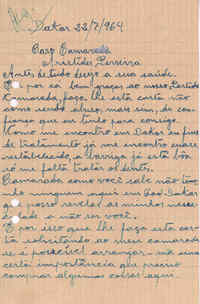 Dakar 23/7/964
Caro Camarada
Aristides Pereira
Antes de tudo desejo a sua saúde.
Eu por cá bem graças ao nosso Partido
Camarada, faço-lhe esta carta não
como um abuso, mas sim, de con-
fiança que eu tinha para consigo.
Como me encontro em Dakar em fins
de tratamento já me encontro quase
restabelecido, a barriga já está boa
só me falta tratar os dentes.
Camarada como você sabe não ten-
ho ninguem aqui em Dakar
a posso revelar as minhas neces-
dade a não ser você.
É por isso que lhe faço esta car-
ta solicitando ao meu camarada
se é possível arranjar-me uma
certa importância que preciso
comprar algumas coisas aqui.